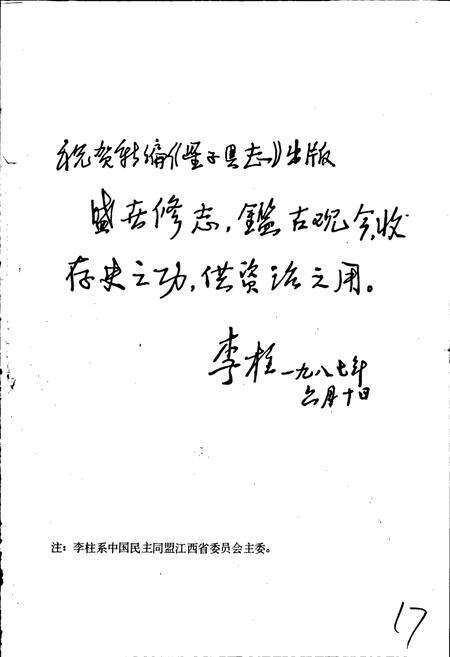 祝贺新编《星子县志》出版
盛世修志，鑑古观今，收
存史之功，供资治之用。
李柱 一九八七年
六月十日
注：李柱系中国民主同盟江西省委员会主委。
17